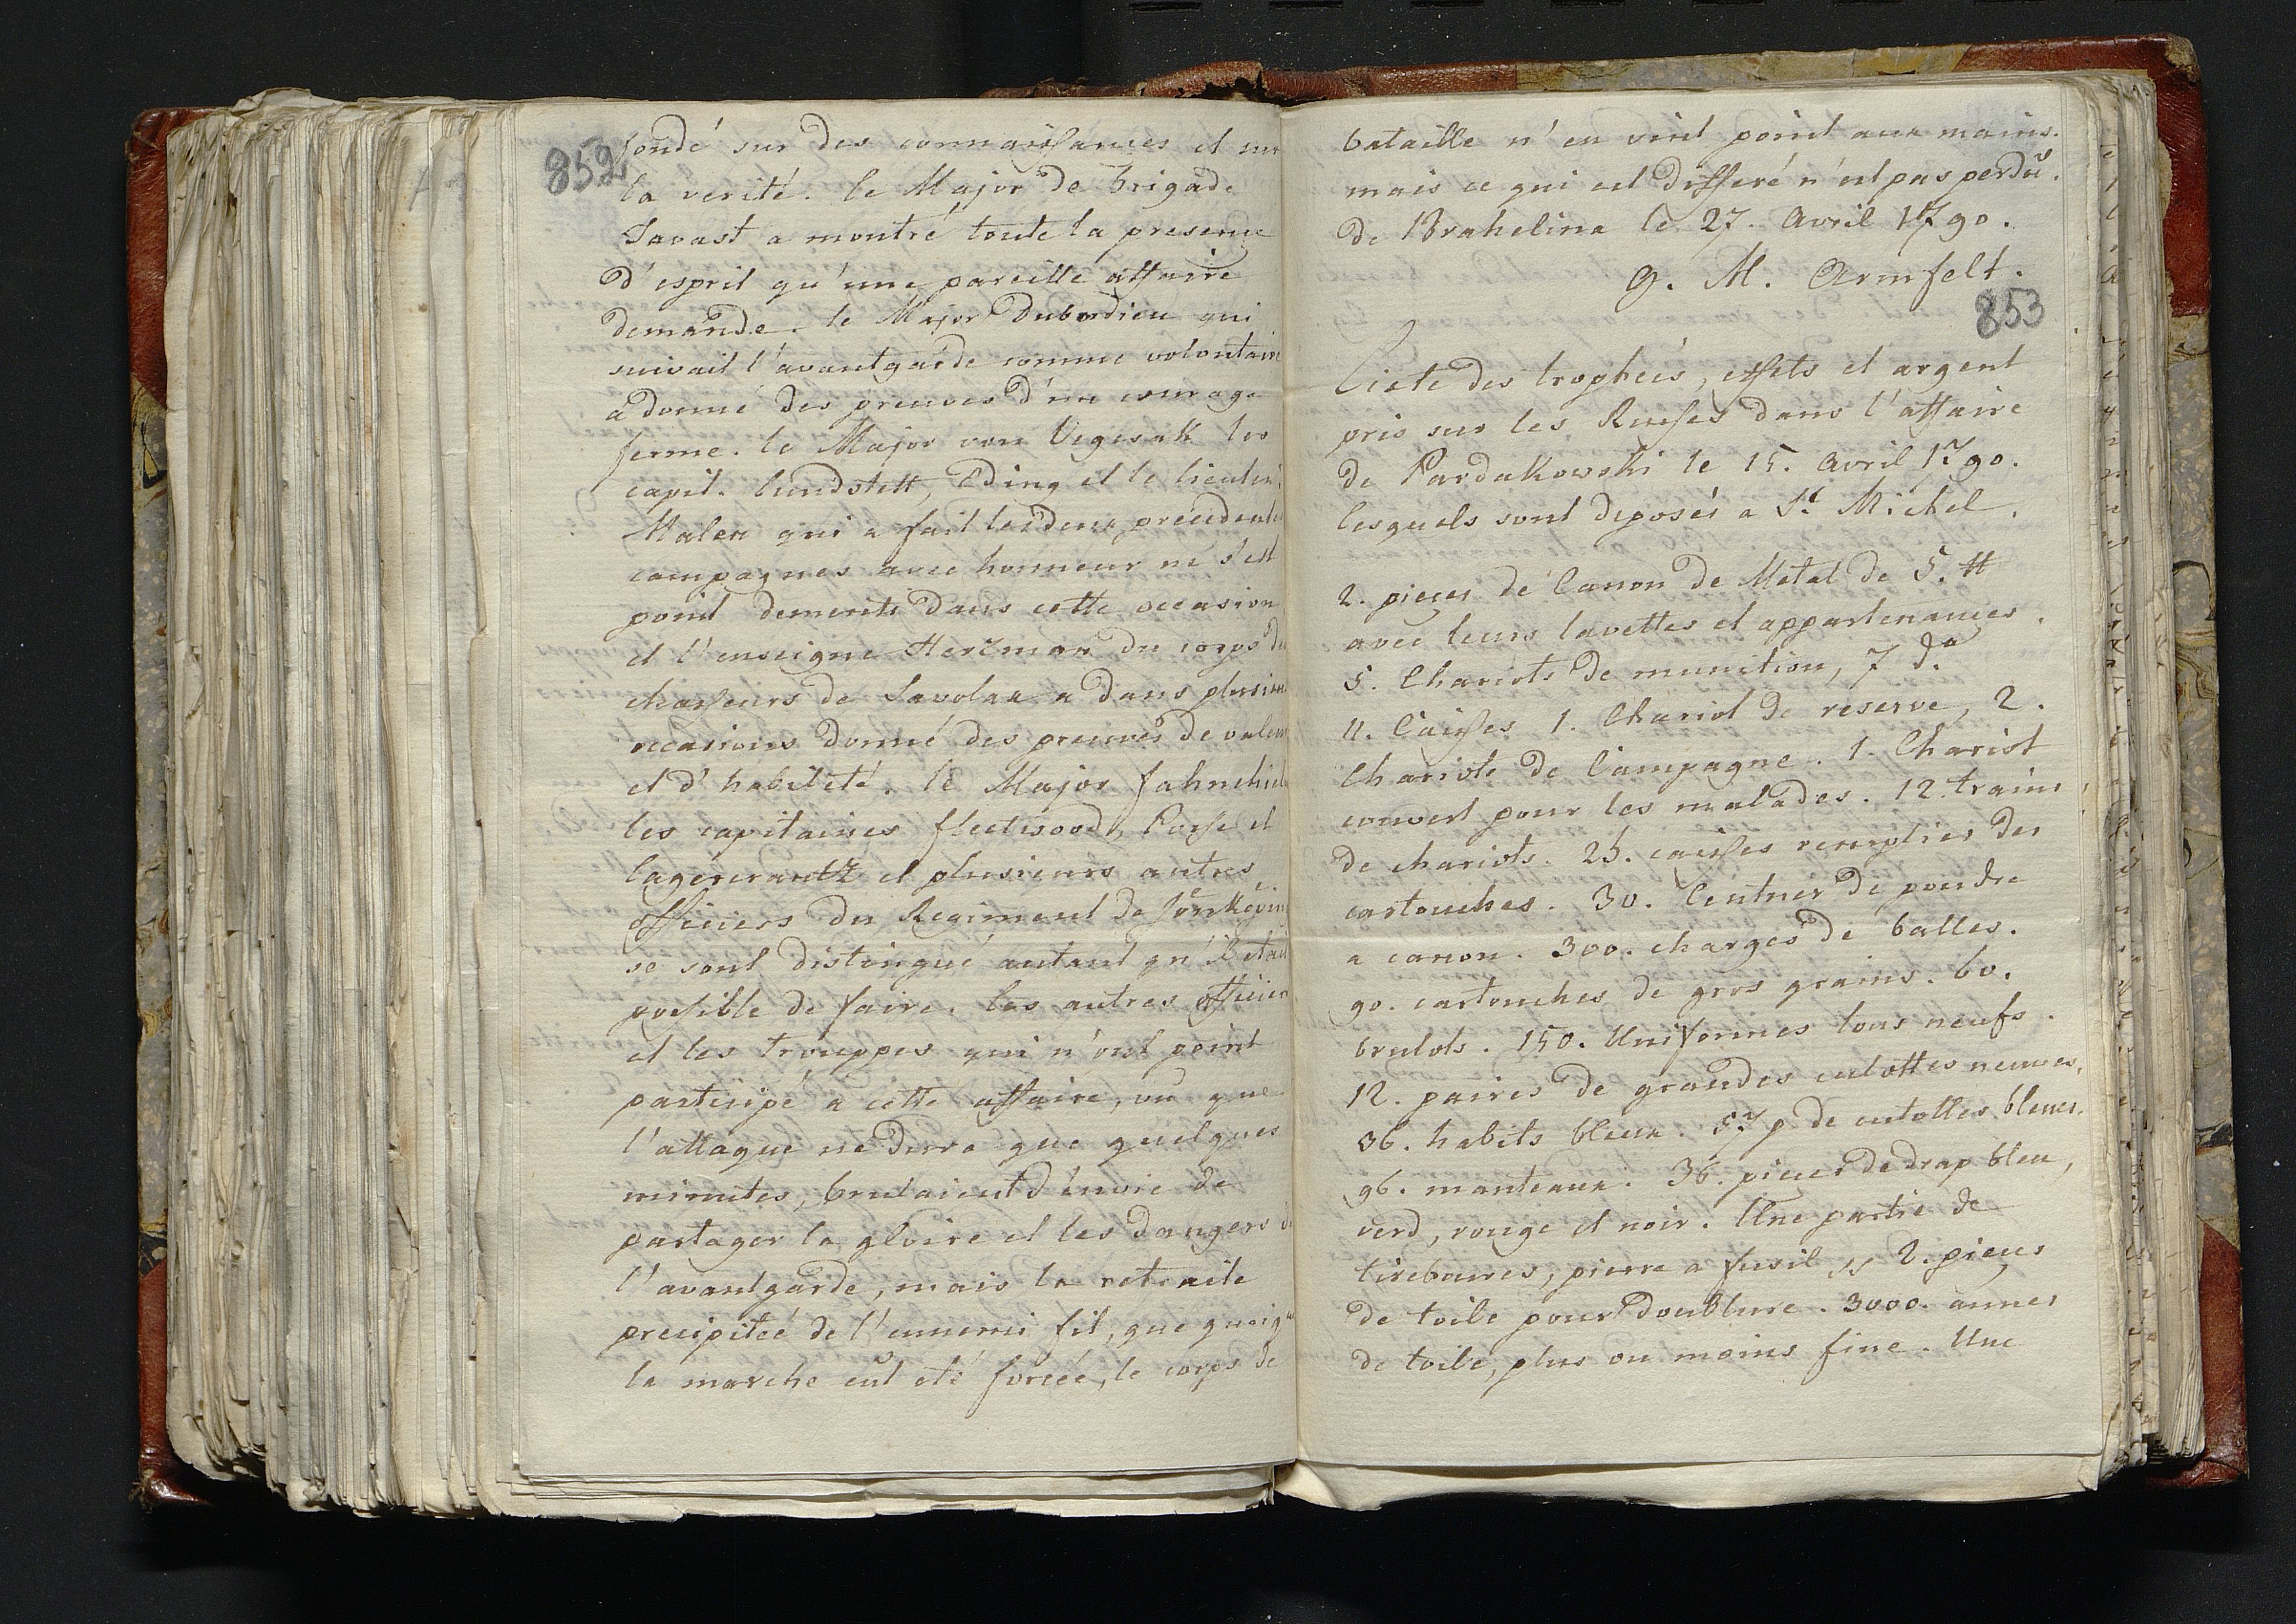 852
fondé sur des connaissances et sur
la verité. le Major de brigade
Savast a montré toute la presence
d'esprit qu'une pareille affaire
demande. le Major Dubordieu qui
suivait l'avantgarde comme volontaire
a donné des preuves d'un courage
ferme. le Major von Vegesak les
capit. Lundstett, Eding et le lieuten:
Malen qui a fait les deux précedentes
campagnes avec honneur ne s'est
point dementi dans cette occasion
et l'enseigne Herzman du corps de
chasseurs de Savolax a dans plusieurs
occasions donné des preuves de valeur
et d'habilité. le Major fahnehielm
les capitaines fleetwood, Posse et
lagercrantz et plusieurs autres
officiers du Regiment de Jönköping
se sont distingué autant qu'il etait
possible de faire. les autres officiers
et les trouppes qui n'ont point
participé a cette affaire, vû que
l'attaque ne dura que quelques
minutes, brulaient d'envie de
partager la gloire et les dangers de
l'avantgarde, mais la retraite
precipitée de l'ennemi fit, que quoique
la marche eût eté forcée, le corps de
bataille n'en vint point aux mains.
mais ce qui est differé n'est pas perdû.
de Brahelinna le 27. Avril 1790.
G. M. Armfelt.
853
Liste des trophées, effets et argent
pris sur les Russes dans l'affaire
de Pardakowski le 15. Avril 1790.
lesquels sont deposés a St. Michel.
2. pieces de Canon de Metal de 5. ℔
avec leurs lavettes et appartenances.
5. Chariots de munition, 7 do
11. Caisses 1. Chariot de reserve, 2.
Chariots de Campagne. 1. Chariot
couvert pour les malades. 12. trains
de chariots. 25. caisses remplies des
cartouches. 30. Centner de poudre
a canon. 300. charges de balles.
90. cartouches de gros grains. 60.
brulots. 150. Uniformes tous neufs.
12. paires de grandes culottes neuves,
36. habits bleux. 57 p. de culottes bleues.
96. manteaux. 36. pieces de drap bleu,
verd, rouge et noir. Une partie de
tirebourres, pierre a fusil 2. pieces
de toile pour doublure. 3000. aunes
de toile, plus ou moins fine. Une